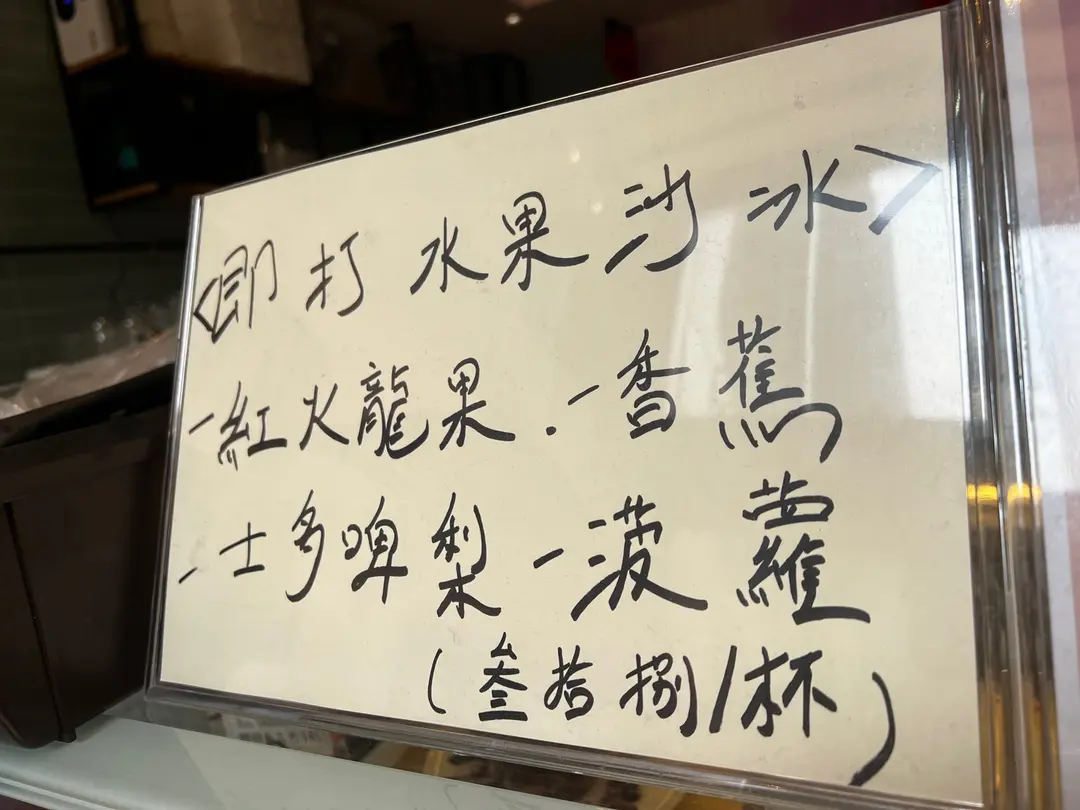 <即打水果沙冰>
-紅火龍果.-香蕉
-士多啤梨-菠蘿
(叁拾捌/杯)